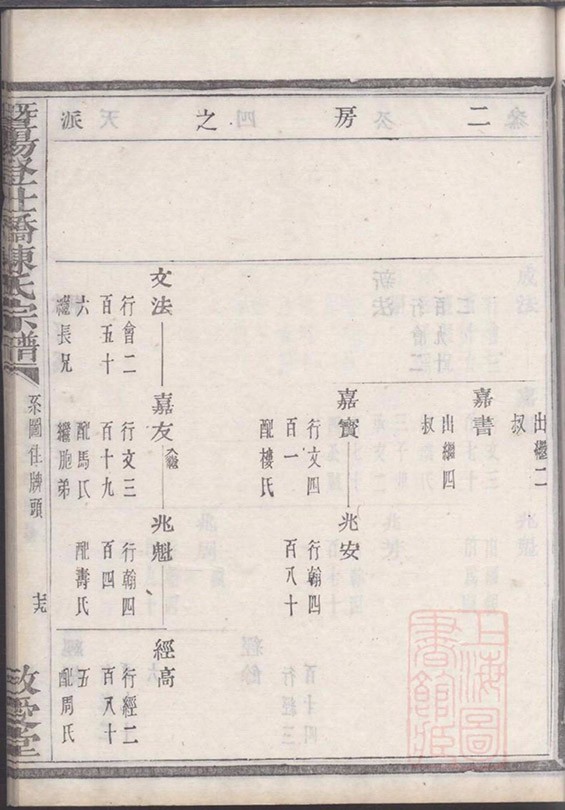 二房之派
出繼二
叔
嘉書
出繼四
叔
嘉實
行文四
百一
配樓氏
兆安
行翰四
百八十
文法
行會二
百五十
六
長兄
嘉友
入繼
行文三
百十九
配馬氏
繼胞弟
兆魁
行翰四
百四
配壽氏
經高
行經二
百八十
五
配周氏
暨陽登仕橋陳氏宗譜
系圖住牌頭
敬愛堂
上海圖
書館藏